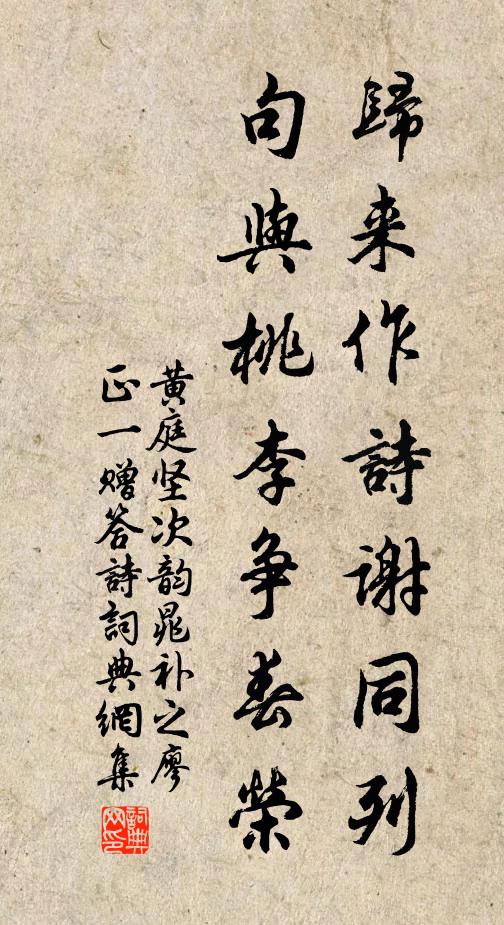 歸来作詩謝同列
句與桃李争春榮
黄庭坚次韵晁补之廖
正一赠答詩詞典網集
詞典
网印